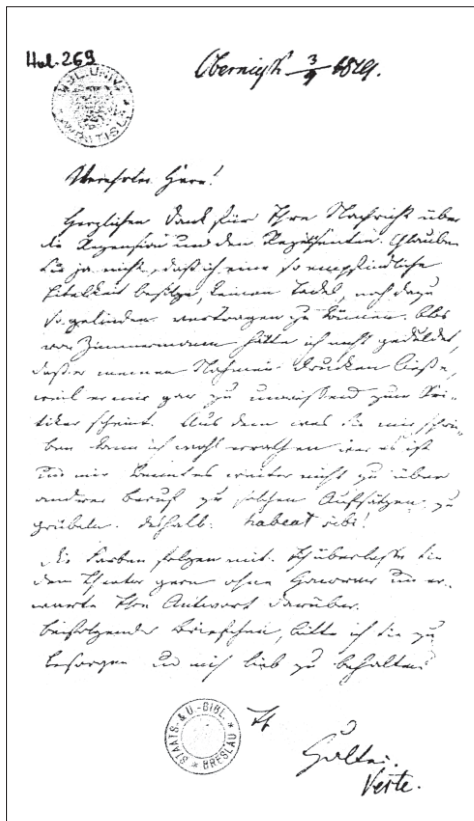 Hol. 269
Obernigk 3/9
Verehrter Herr!
Herzlichen Dank für Ihre Nachricht über
die Rezension und den Rezensenten. Glauben
Sie ja nicht, daß ich eine so empfindliche
Eitelkeit besitze, keinen Tadel, noch dazu
so gelinden vertragen zu können. Blos
von Zimmermann hätte ich nicht geduldet,
daß er meinen Nahmen drucken ließe,
weil er mir gar zu unwissend zum Kri-
tiker scheint. Aus dem was Sie mir schrei-
ben kann ich wohl errathen wer es ist
und mir kommt es weiter nicht zu über
andrer Beruf zu solchen Aufsätzen zu
grübeln. Deshalb: habeat sibi!
Die folgen mit. Ich überlasse sie
dem Theater gern ohne Honorar und er-
warte Ihre Antwort darüber.
Beifolgendes Briefchen, bitte ich Sie zu
besorgen und mich lieb zu behalten
Ihr
Holtei.
STAATS- & U.-BIBL. * BRESLAU *